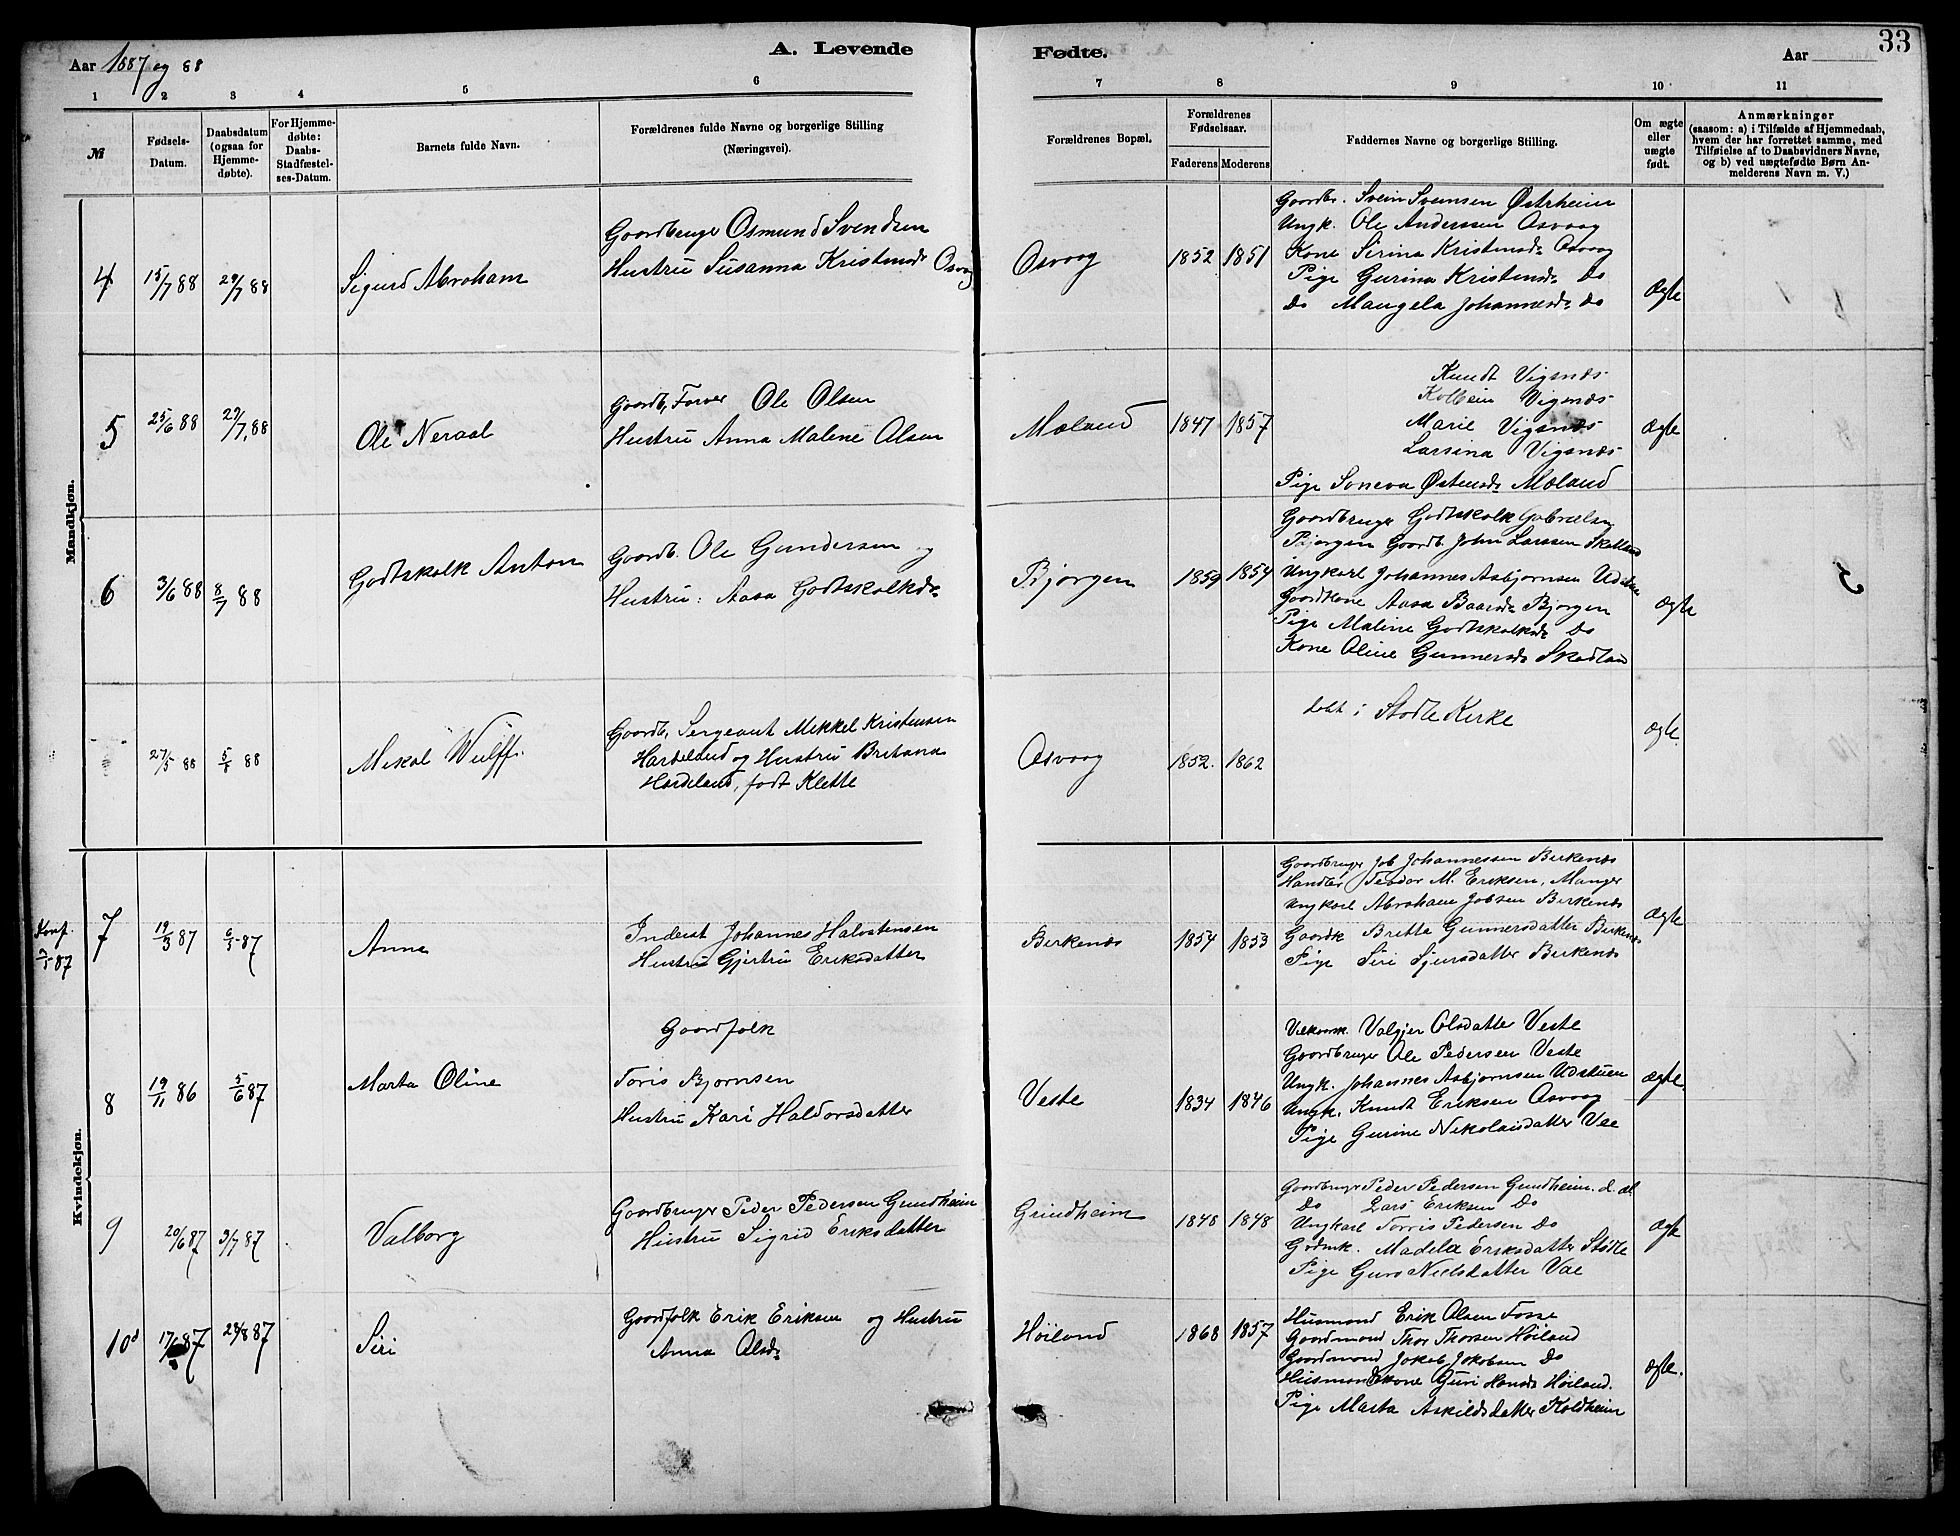 A. Levende
Fødte.
33
Aar 1887 og 88
Aar
1
2
3
4
5
6
7
8
9
10
11
№
Fødsels-
Datum.
Daabsdatum
(ogsaa for
Hjemme-
døbte).
For Hjemme-
døbte:
Daabs-
Stadfæstel-
ses-Datum.
Barnets fulde Navn.
Forældrenes fulde Navne og borgerlige Stilling
(Næringsvei).
Forældrenes Bopæl.
Forældrenes
Fødselsaar.
Faderens
Moderens
Faddernes Navne og borgerlige Stilling.
Om ægte
eller
uægte
født.
Anmærkninger
(saasom: a) i Tilfælde af Hjemmedaab,
hvem der har forrettet samme, med
Tilføielse af to Daabsvidners Navne,
og b) ved uægtefødte Børn An-
melderens Navn m. V.)
Mandkjøn.
4
15/7 88
29/7 88
Sigurd Abraham
Gaardbruger Osmund Svendsen
Hustru Susanna Kristensd. Osvaag
Osvaag
1852
1851
Gaardbr. Svein Svensen Østrheim
Ungk. Ole Anderssen Osvaag
Kone Serina Kristensd. Osvaag
Pige Gurina Kristensd. Do
Do Mangela Johannesd. Do
Ægte
5
25/6 88
29/7 88
Ole Neraal
Gaardb. Farver Ole Olsen
Hustru Anna Malene Olsen
Mæland
1847
1857
Knudt Vigsnæs
Kolbein Vigsnæs
Marie Vigsnæs
Larsina Vigsnæs
Pige Soneva Østensd. Mæland
Ægte
6
3/6 88
8/7 88
Godtskalk Anton
Gaardb. Ole Gundersen og
Hustru: Aasa Godtskalksd.
Bjørgen
1859
1854
Gaardbruger Godtskalk Gabrielsen
Bjørgen Gaardb. John Larssen Skatland
Ungkarl Johannes Asbjørnsen Udstuen
Gaardkone Aasa Baardsd. Bjørgen
Pige Maline Godtskalksd. Do
Kone Oline Gunnersd. Skatland
Ægte
27/5 88
5/8 88
Mikal Wulff.
Gaardb. Sergeant Mikkel Kristensen
Hardeland og Hustru Britana
Hardeland, født Klette
Osvaag
1852.
1862
døbt i Stødle Kirke
ægte.
Kvindekjøn.
Konf.
7
19/3 87
6/3 87
Anna
Inderst Johannes Halvstensen
Hustru Gjertru Eriksdatter
Birkenæs
1854
1853
Gaardbruger Job Johannessen Birkenæs
Handler Teodor M. Eriksen, Manger
Ungkarl Abraham Jobsen Birkenæs
Gaardk Britte Gunnersdatter Birkenæs
Pige Siri Sjursdatter Birkenæs
Ægte
8
19/11 86
5/6 87
Marta Oline
Gaardfolk
Toris Bjørnsen
Hustru Kari Haldorsdatter
Veste
1834
1846
Valgjer Olsdatter Veste
Gaardbruger Ole Pedersen Veste
Ungk. Johannes Asbjørnsen Udstuen
Ungk. Knudt Eriksen Osvaag
Pige Gurine Nikolaisdatter Vae
Ægte.
9
20/6 87
3/7 87
Valborg
Gaardbruger Peder Pedersen Grindheim
Hustru Sigrid Eriksdatter
Grindheim
1848
1848
Gaardbruger Peder Pedersen Grindheim. d. æl.
Do Lars Eriksen Do
Ungkarl Torris Pedersen Do
Madela Eriksdatter Stødle
Pige Guro Nielsdatter Vae
Ægte
10
17/ 87
28/8 87
Siri
Gaardfolk Erik Eriksen og Hustru
Anna Olsd.
Høiland
1868
1857
Husmand Erik Olsen Fosse
Gaardmand Thor Thorsen Høiland
Gaardmand Jakob Jakobsen Do
Husmandskone Guri Hansd. Høiland.
Pige Marta Askildsdatter Koldheim
ægte.